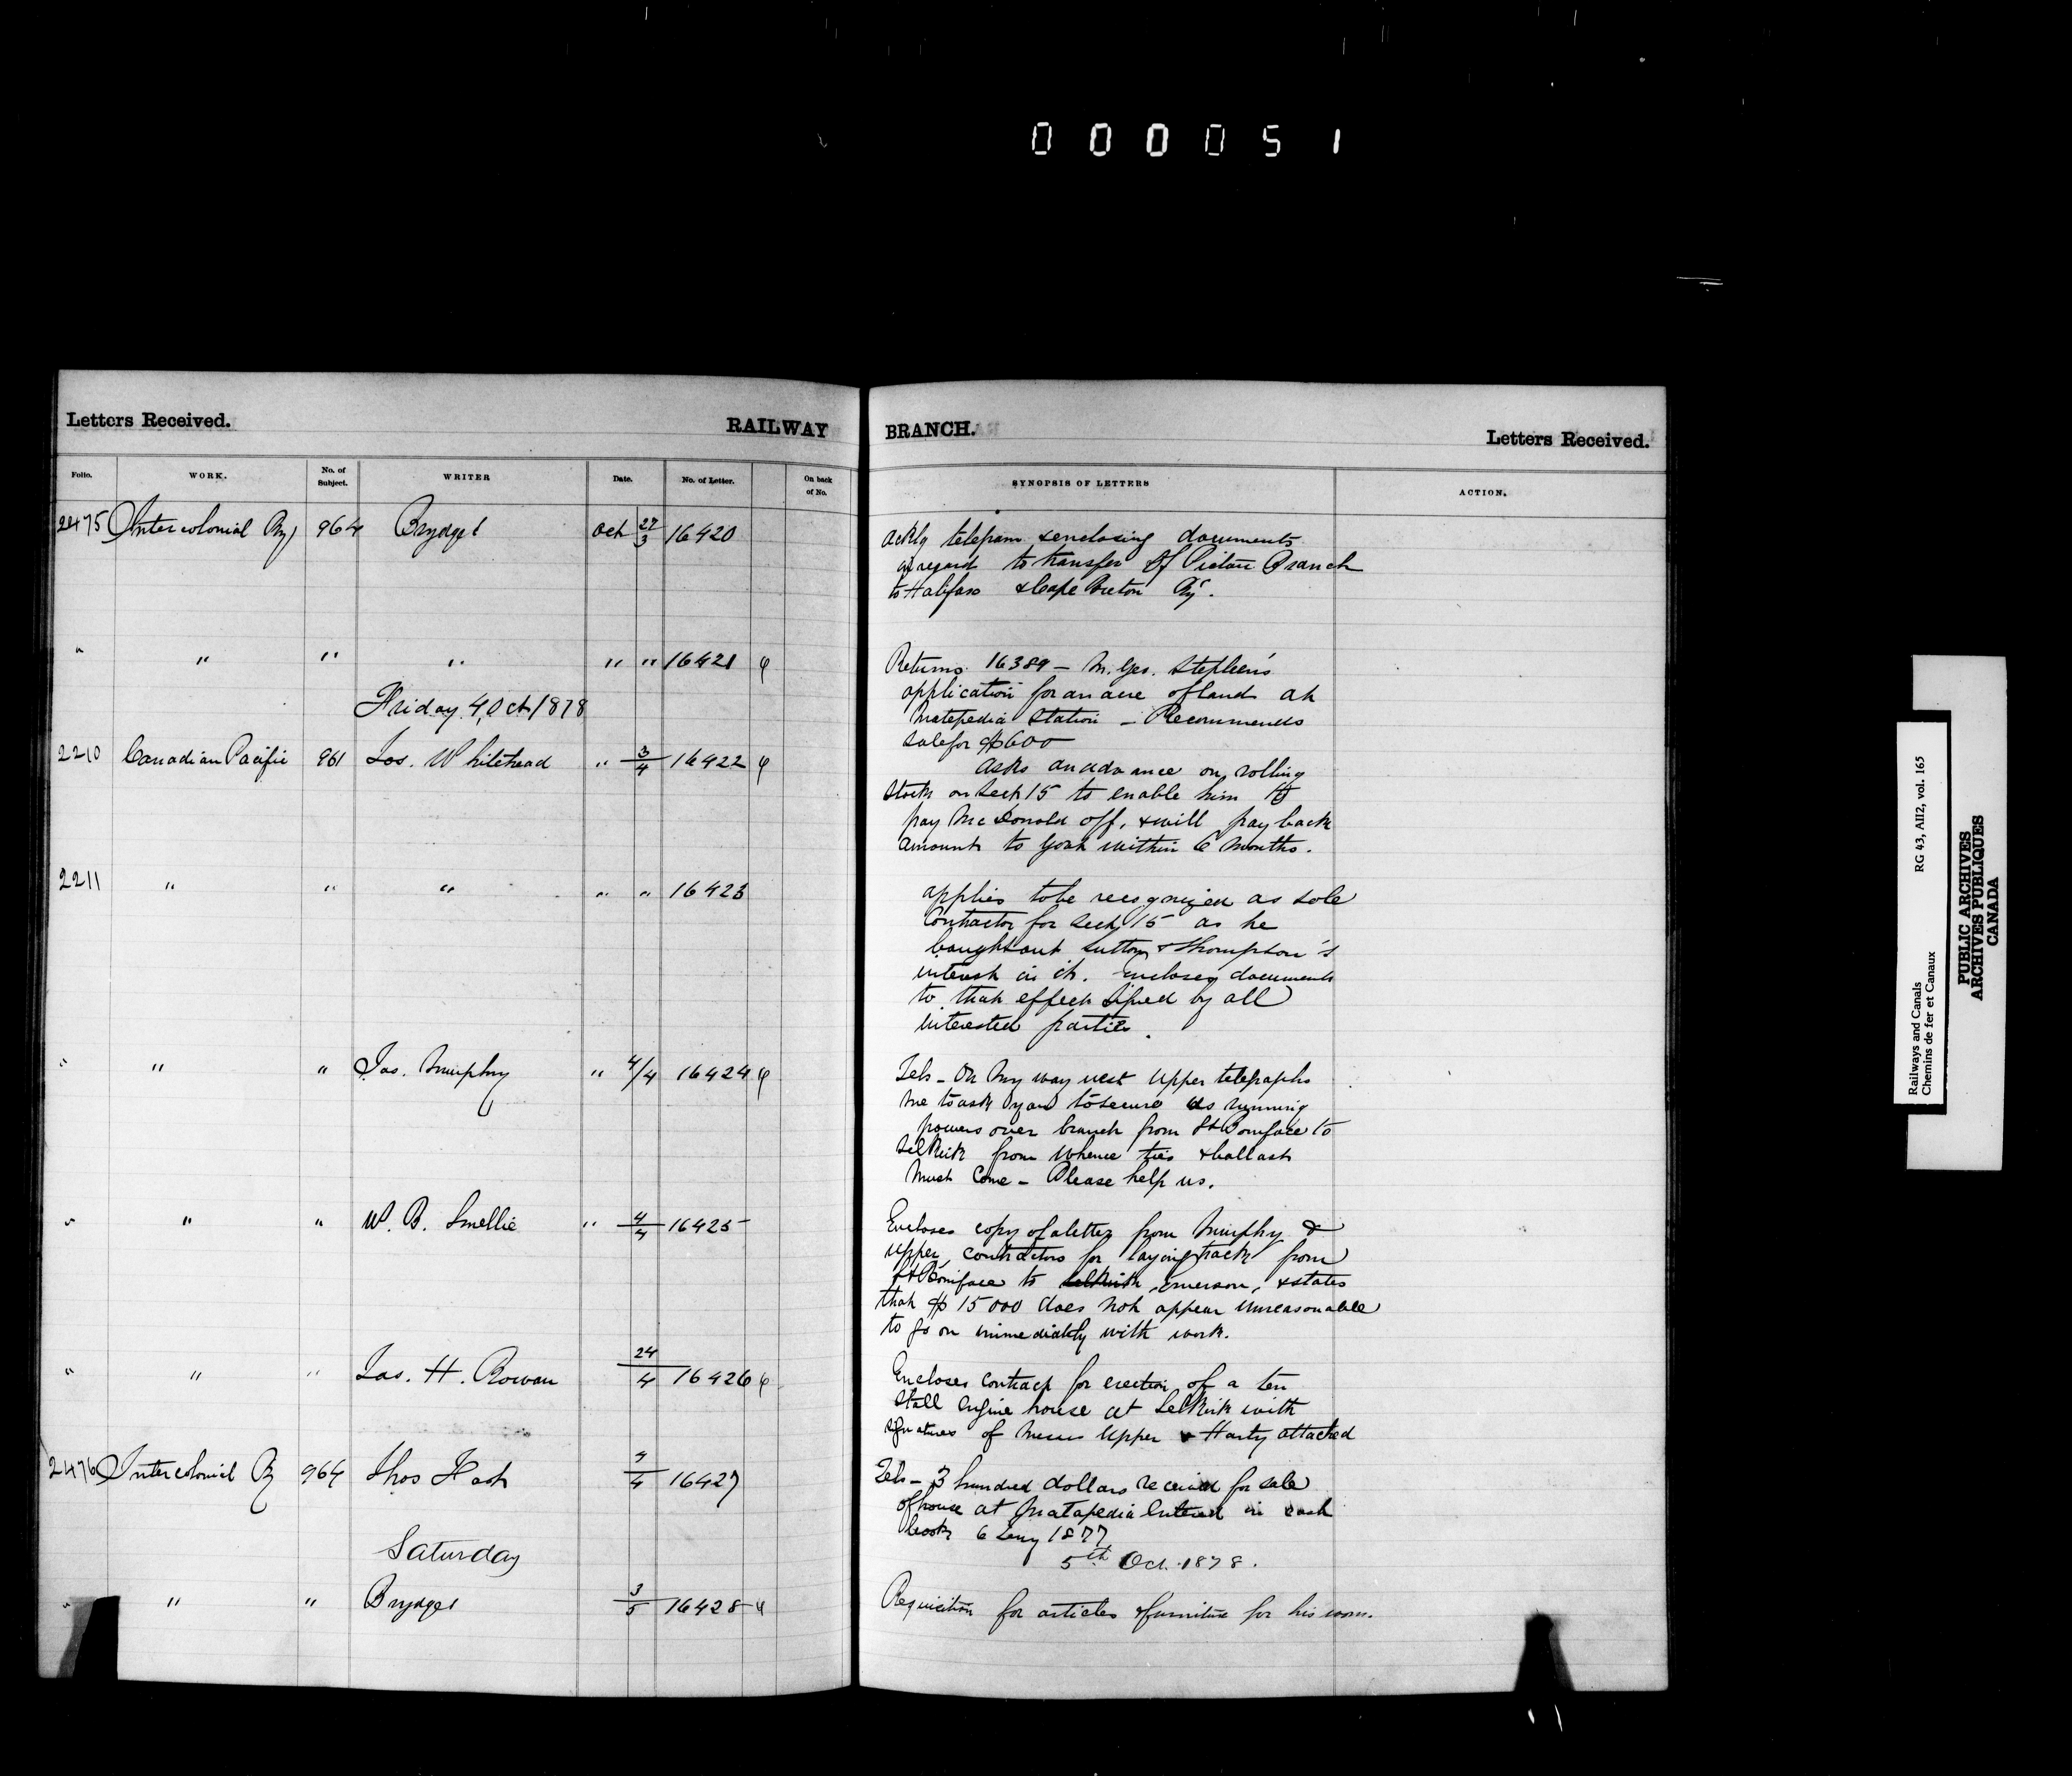 000051
Letters Received. RAILWAY
Folio. WORK. No. of Subject. WRITER Date. No. of Letter. On back of No.
2475 Intercolonial Ry 964 Brydges Oct 27/3 16420
" " " " " " 16421 φ
Friday 4, Oct 1878
2210 Canadian Pacific 961 Jos. Whitehead " 3/4 16422 φ
2211 " " " " " 16423
" " " Jas. Murphy " 4/4 16424 φ
" " " W. B. Smellie " 4/4 16425
" " " Jas. H. Rowan 24/4 16426 φ
2476 Intercolonial Ry 964 Thos 4 16427
Saturday
" " " Brydges 3/5 16428 φ
BRANCH. Letters Received.
SYNOPSIS OF LETTERS ACTION.
Ackg telegram enclosing documents
as regard to transfer of Pictou Branch
to Halifax & Cape Breton Ry.
Returns 16389 - Mr. Geo. Stephen's
application for an acre of land at
Matepedia Station - Recommends
sale for $600
Asks an advance on rolling
stock on Sect 15 to enable him to
pay McDonald off, & will pay back
amount to Govt within 6 months.
applies to be recognized as sole
Contractor for Sect 15 as he
bought out Sutton & Thompson's
interest in it. Encloses documents
to that effect signed by all
interested parties.
Tels - On my way west Upper telegraphs
me to ask you to secure us running
powers over branch from St Boniface to
Selkirk from whence ties & ballast
must come - Please help us.
Encloses copy of a letter from Murphy &
Upper, contractors for laying track from
St Boniface to Selkirk, Emerson, & states
that $15000 does not appear unreasonable
to go on immediately with work.
Encloses contract for erection of a ten
stall engine house at Selkirk with
signatures of Messrs Upper & Harty attached
Tels - 3 hundred dollars received for sale
of house at Matapedia entered in cash
book 6 1877
5th Oct. 1878.
Requisition for articles & furniture for his room.
Railways and Canals RG 43, AII2, vol. 165
Chemins de fer et Canaux
PUBLIC ARCHIVES
ARCHIVES PUBLIQUES
CANADA